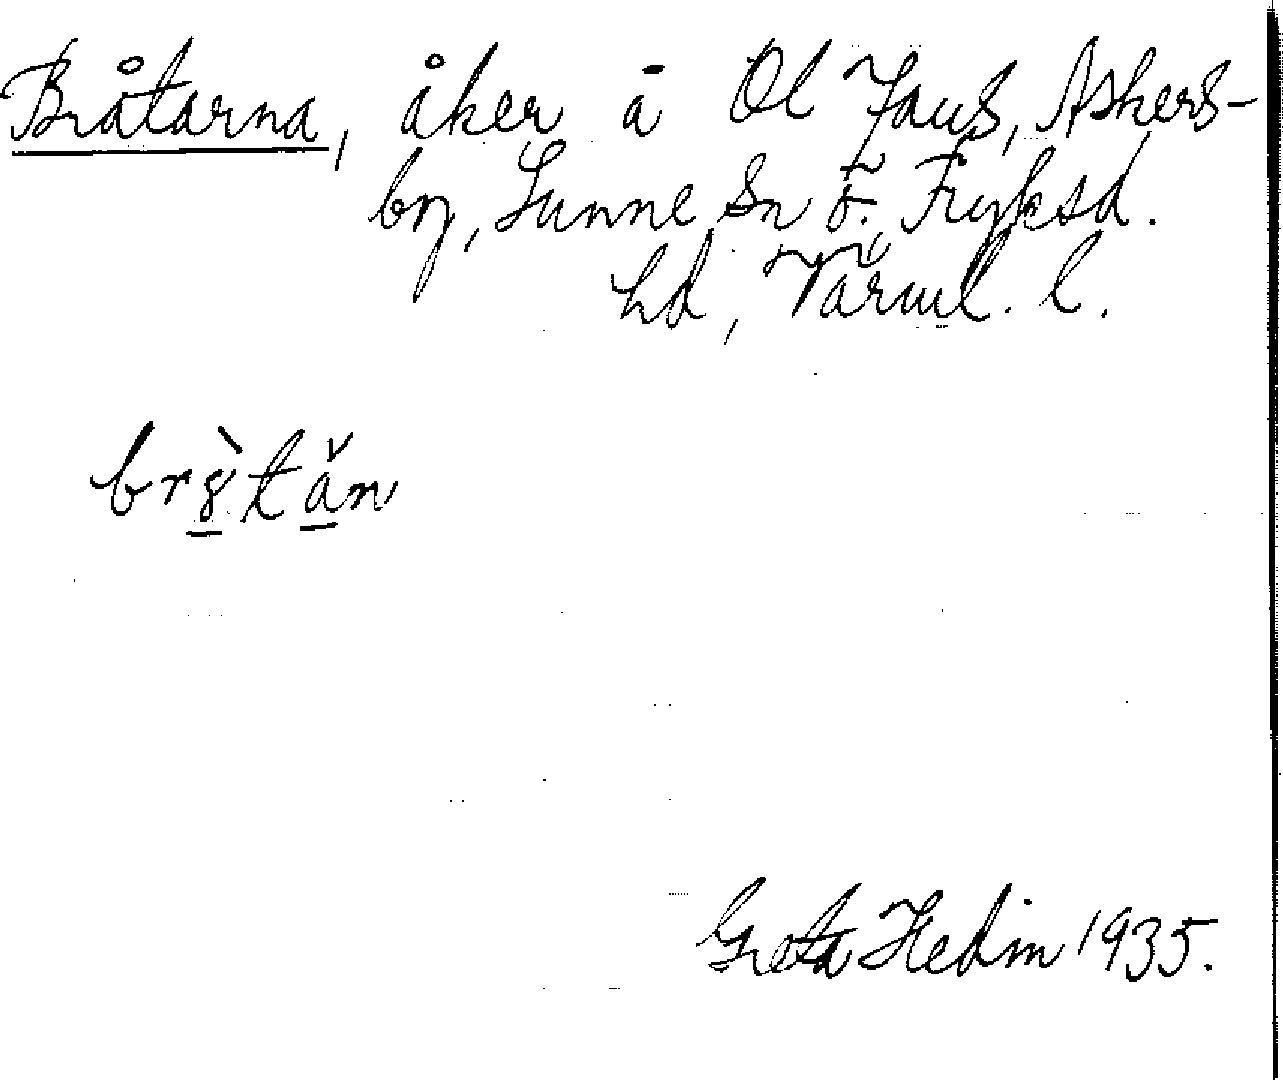 Bråtarna, åker å Ol Jans, Askers-
by, Sunne Sn Ö. Fryksd.
hd, Värml. l.
br8̲̀tǎ̲n
Greta Hedin 1935.